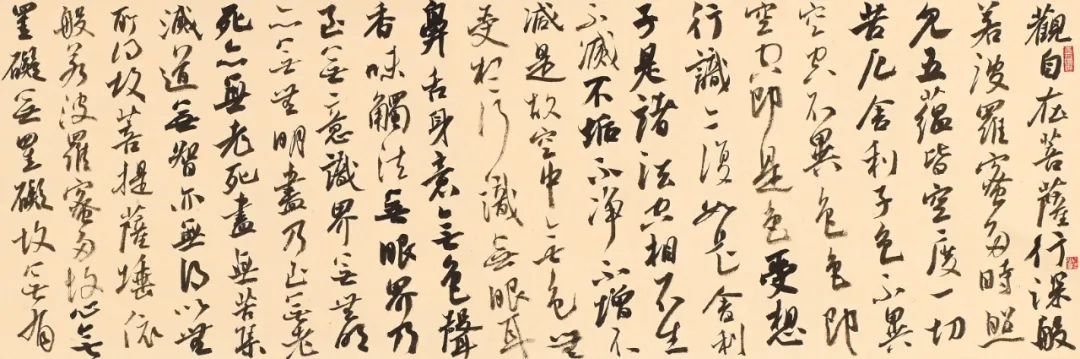 觀自在菩薩行深般
若波羅蜜多時照
見五蘊皆空度一切
苦厄舍利子色不異
空空不異色色即
空空即是色受想
行識亦復如是舍利
子是諸法空相不生
不滅不垢不淨不增不
減是故空中無色無
受想行識無眼耳
鼻舌身意無色聲
香味觸法無眼界乃
至無意識界無無明
亦無無明盡乃至無老
死亦無老死盡無苦集
滅道無智亦無得以無
所得故菩提薩埵依
般若波羅蜜多故心無
罣礙無罣礙故無有